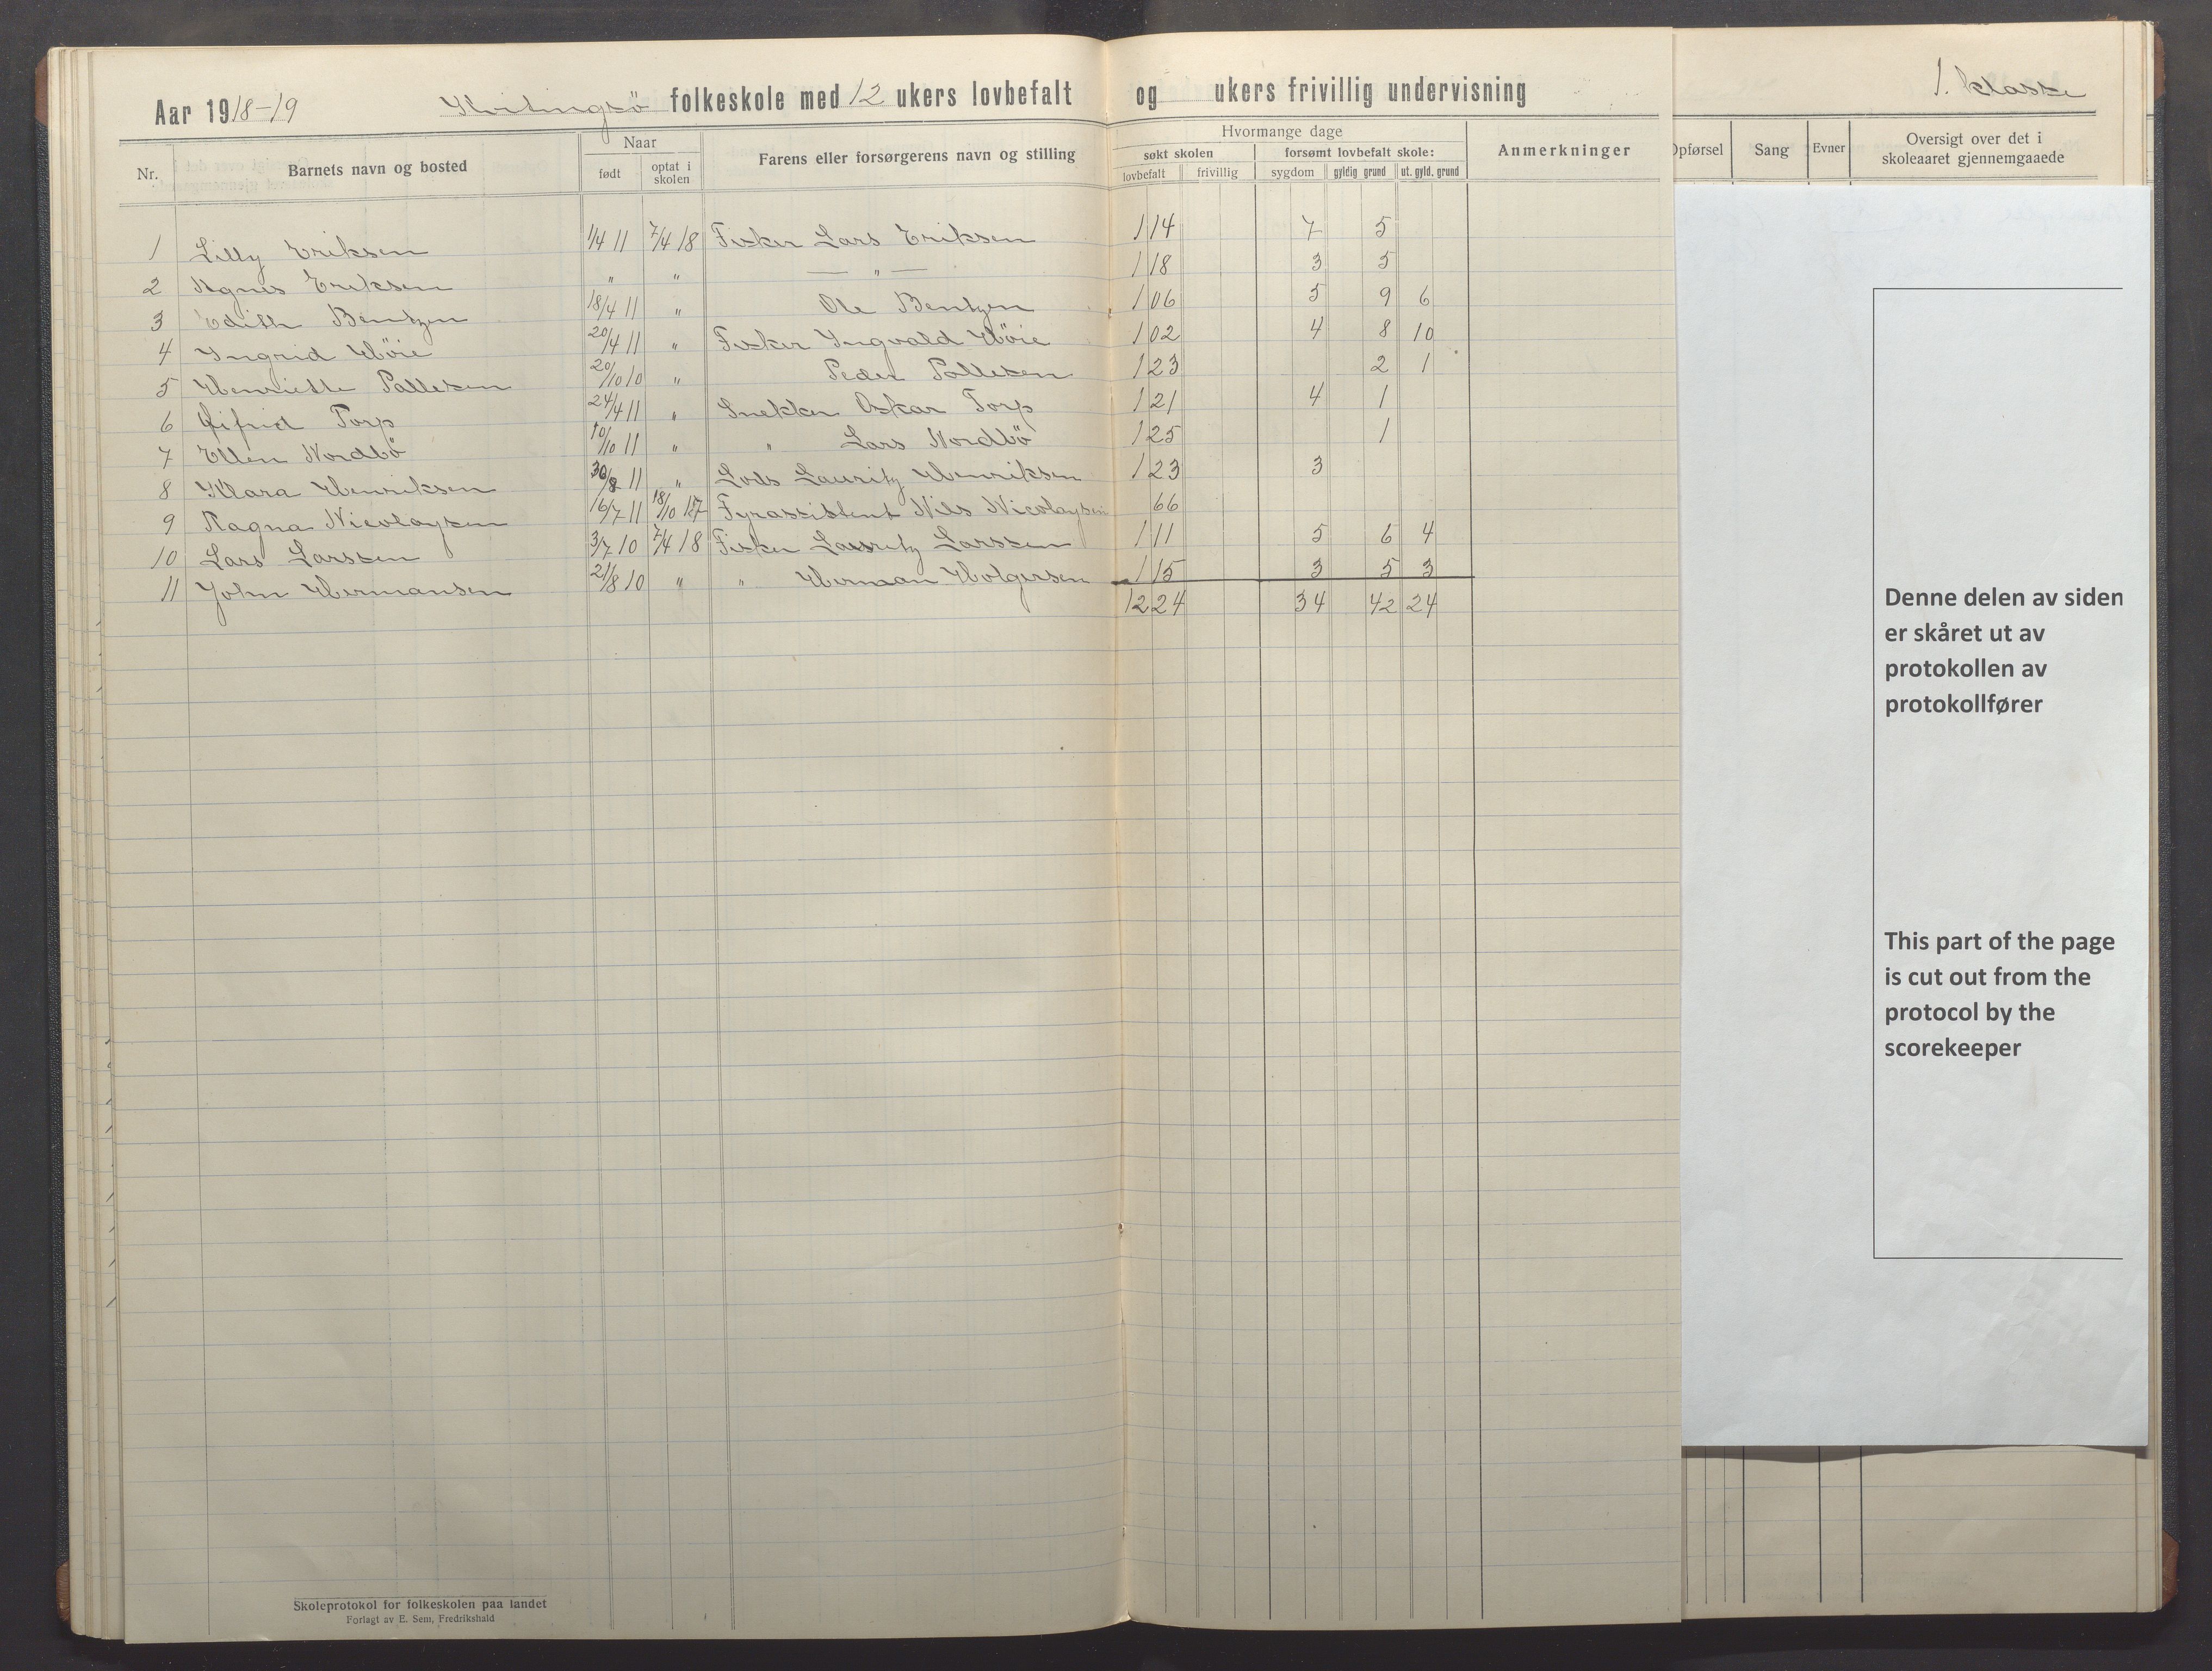 Aar 1918-19 folkeskole med 12 ukers lovbefalt og ukers frivillig undervisning
1. klasse
Nr. Barnets navn og bosted Naar født optat i skolen Farens eller forsørgerens navn og stilling Hvormange dage søkt skolen lovbefalt frivillig forsømt lovbefalt skole: sygdom gyldig grund ut. gyld. grund Anmerkninger
Opførsel Sang Evner Oversigt over det i skoleaaret gjennemgaaede
1 Lilly Eriksen 1/4 11 7/4 18 Fisker Lars Eriksen 114 7 5
2 Agnes Eriksen " " — " — 118 3 5
3 Edith Bentzen 18/4 11 " Ole Bentzen 106 5 9 6
4 Ingrid Høie 20/4 11 " Fisker Ingvald Høie 102 4 8 10
5 Henriette Pallesen 20/10 10 " Peder Pallesen 123 2 1
6 Torp 24/4 11 " Snekker Oskar Torp 121 4 1
7 Ellen Nordbö 10/10 11 " " Lars Nordbö 125 1
8 Klara Henriksen 30/8 11 " Lods Lauritz Henriksen 123 3
9 Ragna Nicolaysen 16/7 11 18/10 Fyrassistent Nils Nicolaysen 66
10 Lars Larssen 3/7 10 7/4 18 Fisker Lauritz Larssen 111 5 6 4
11 John Hermansen 21/8 10 " " Herman Holgersen 115 3 5 3
1224 34 42 24
Denne delen av siden
er skåret ut av
protokollen av
protokollfører
This part of the page
is cut out from the
protocol by the
scorekeeper
Skoleprotokol for folkeskolen paa landet
Forlagt av E. Sem, Fredrikshald